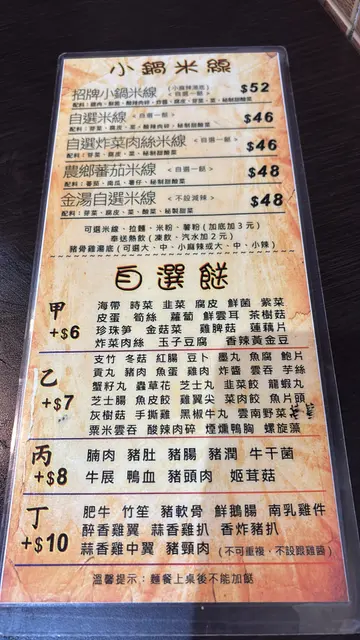 小鍋米線
招牌小鍋米線 <自選一餸> (小麻辣湯底) $52
自選米線 <自選一餸> $46
配料：芽菜、腐皮、菜、酸辣肉碎、秘制甜酸菜
自選炸菜肉絲米線 <自選一餸> $46
配料：芽菜、腐皮、菜、秘制甜酸菜
農鄉蕃茄米線 <自選一餸> $48
配料：番茄、南瓜、薯仔、秘制甜酸菜
金湯自選米線 <不設減辣> $48
配料：芽菜、腐皮、菜、酸菜、秘製甜酸
可選米線、拉麵、米粉、薯粉（加底加３元）
奉送熱飲（凍飲、汽水加２元）
豬骨雞湯底（可選大、中、小麻辣或大、中、小辣）
自選餸
甲 +$6
海帶 時菜 韭菜 腐皮 鮮菌 紫菜
皮蛋 筍絲 蘿蔔 鮮雲耳 茶樹菇
珍珠筍 金菇菜 雞脾菇 蓮藕片
炸菜肉絲 玉子豆腐 香辣黃金豆
乙 +$7
支竹 冬菇 紅腸 豆卜 墨丸 魚腐 鮑片
貢丸 豬肉 魚蛋 雞肉 炸醬 雲吞 芋絲
蟹籽丸 蟲草花 芝士丸 韭菜餃 龍蝦丸
芝士腸 魚皮餃 雞翼尖 菜肉餃 魚片頭
灰樹菇 手撕雞 黑椒牛丸 雲南野菜
粟米雲吞 酸辣肉碎 煙燻鴨胸 螺旋藻
丙 +$8
腩肉 豬肚 豬腸 豬潤 牛干菌
牛展 鴨血 豬頭肉 姬茸菇
丁 +$10
肥牛 竹笙 豬軟骨 鮮鵝腸 南乳雞件
醉香雞翼 蒜香雞扒 香炸豬扒
蒜香雞中翼 豬頸肉 (不可重複，不設跟雞醬)
溫馨提示：麵餐上桌後不能加餸